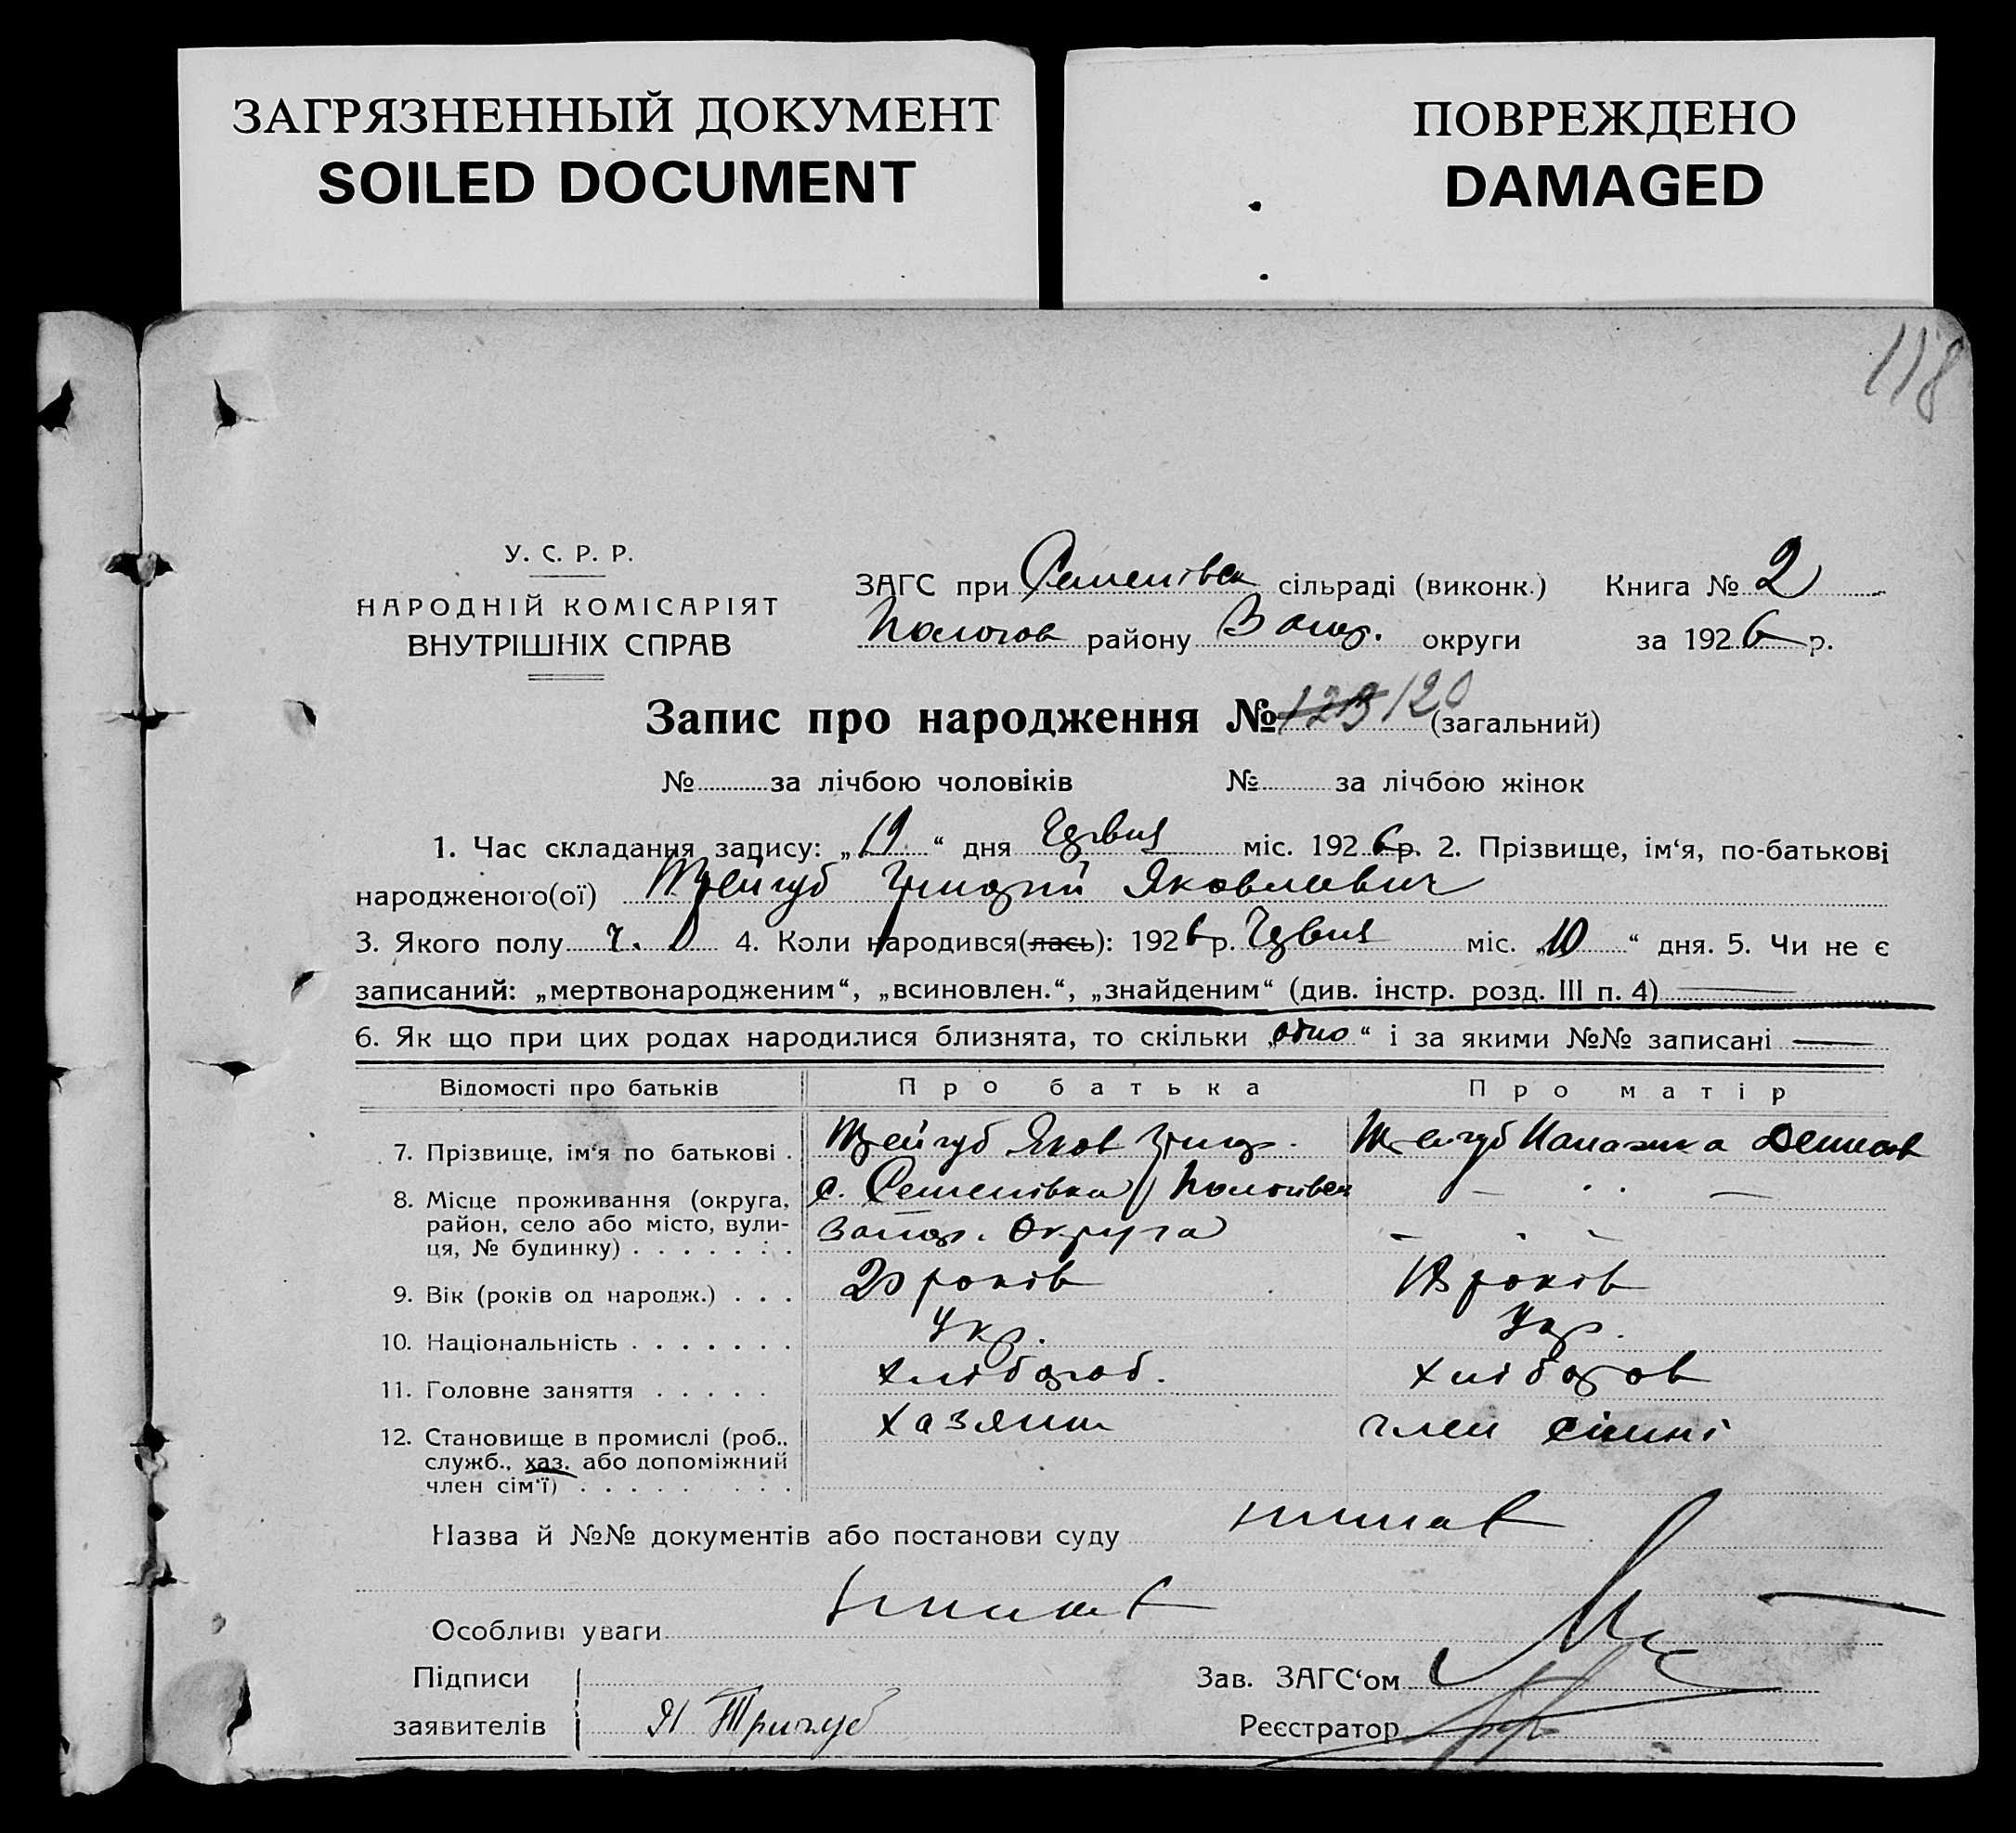 ЗАГРЯЗНЕННЫЙ ДОКУМЕНТ
SOILED DOCUMENT
ПОВРЕЖДЕНО
DAMAGED
118
У. С. Р. Р.
НАРОДНІЙ КОМІСАРІЯТ
ВНУТРІШНІХ СПРАВ
ЗАГС при Семенівск сільраді (виконк.) Книга № 2
Пологов району Запор. округи за 1926 р.
Запис про народження № 123 120 (загальний)
№ за лічбою чоловіків № за лічбою жінок
1. Час складання запису: „19“ дня Червня міс. 1926 р. 2. Прізвище, ім‘я, по-батькові
народженого(ої) Трейгуб Григорій Яковлевич
3. Якого полу ч. 4. Коли народився(лась): 1926 р. Червня міс. „10“ дня. 5. Чи не є
записаний: „мертвонародженим“, „всиновлен.“, „знайденим“ (див. інстр. розд. III п. 4)
6. Як що при цих родах народилися близнята, то скільки „одно“ і за якими №№ записані —
Відомості про батьків Про батька Про матір
7. Прізвище, ім‘я по батькові . Трейгуб Яков Григор. Трейгуб Палажка
8. Місце проживання (округа, с. Семенівка Пологівск
район, село або місто, вули- Запор. Округа
ця, № будинку) . . . . . . .
9. Вік (років од народж.) . . . 20 років 18 років
10. Національність . . . . . . . Укр. Укр.
11. Головне заняття . . . . . хлібороб. хлібороб
12. Становище в промислі (роб., хазяин член сімні
служб., хаз. або допоміжний
член сім‘ї) . . . . . . . . .
Назва й №№ документів або постанови суду немає
Особливі уваги немає
Підписи Зав. ЗАГС‘ом
заявителів Я Тригуб Реєстратор